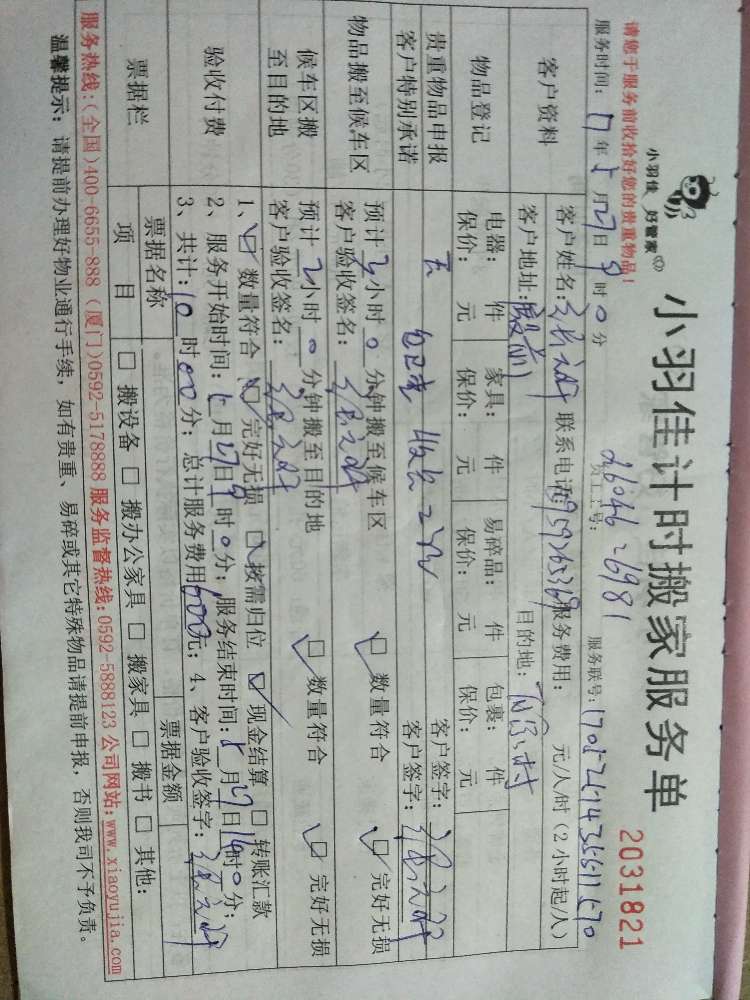 请您于服务前收拾好您的贵重物品!
小羽佳 好管家
小羽佳计时搬家服务单
2031821
服务时间: 17年5月27日9时0分
员工工号: 26046 26981
服务联号:
客户资料
客户姓名: 联系电话: 服务费用: 元/人/时(2小时起/人)
客户地址: 目的地:
物品登记
电器: 件 家具: 件 易碎品: 件 包裹: 件
保价: 元 保价: 元 保价: 元 保价: 元
贵重物品申报 无 客户签字:
客户特别承诺 客户签字:
物品搬至候车区
预计2小时0分钟搬至候车区 □数量符合 □完好无损
客户验收签名:
候车区搬至目的地
预计2小时0分钟搬至目的地 □数量符合 □完好无损
客户验收签名:
验收付费
1、□数量符合 □完好无损 □按需归位 □现金结算 □转账汇款
2、服务开始时间:5月27日9时0分; 服务结束时间:5月27日 时0分;
3、共计:10时00分; 总计服务费用600元; 4、客户验收签字:
票据栏
票据名称 票据金额
项目 □搬设备 □搬办公家具 □搬家具 □搬书 □其他:
服务热线:(全国)400-6655-888 (厦门)0592-5178888 服务监督热线:0592-5888123 公司网站:www.xiaoyujia.com
温馨提示: 请提前办理好物业通行手续, 如有贵重、易碎或其它特殊物品请提前申报, 否则我司不予负责。